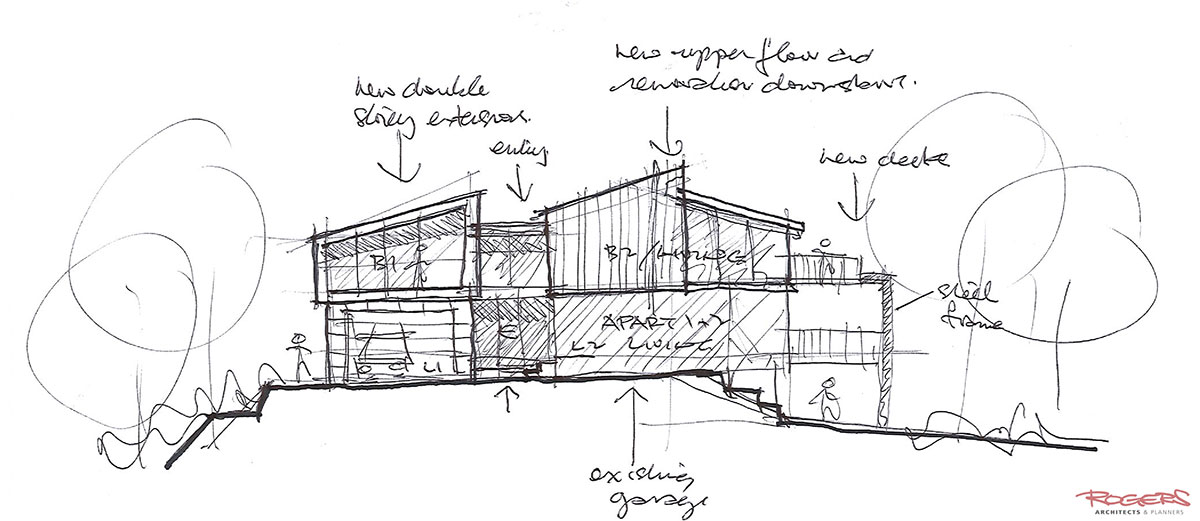 new upper floor and
renovation downstairs.
new double
storey extension.
entry
new decks
B1
B2/LIVING
steel
frame
E
APART 1+2
LIVING
existing
garage
ROGERS
ARCHITECTS & PLANNERS